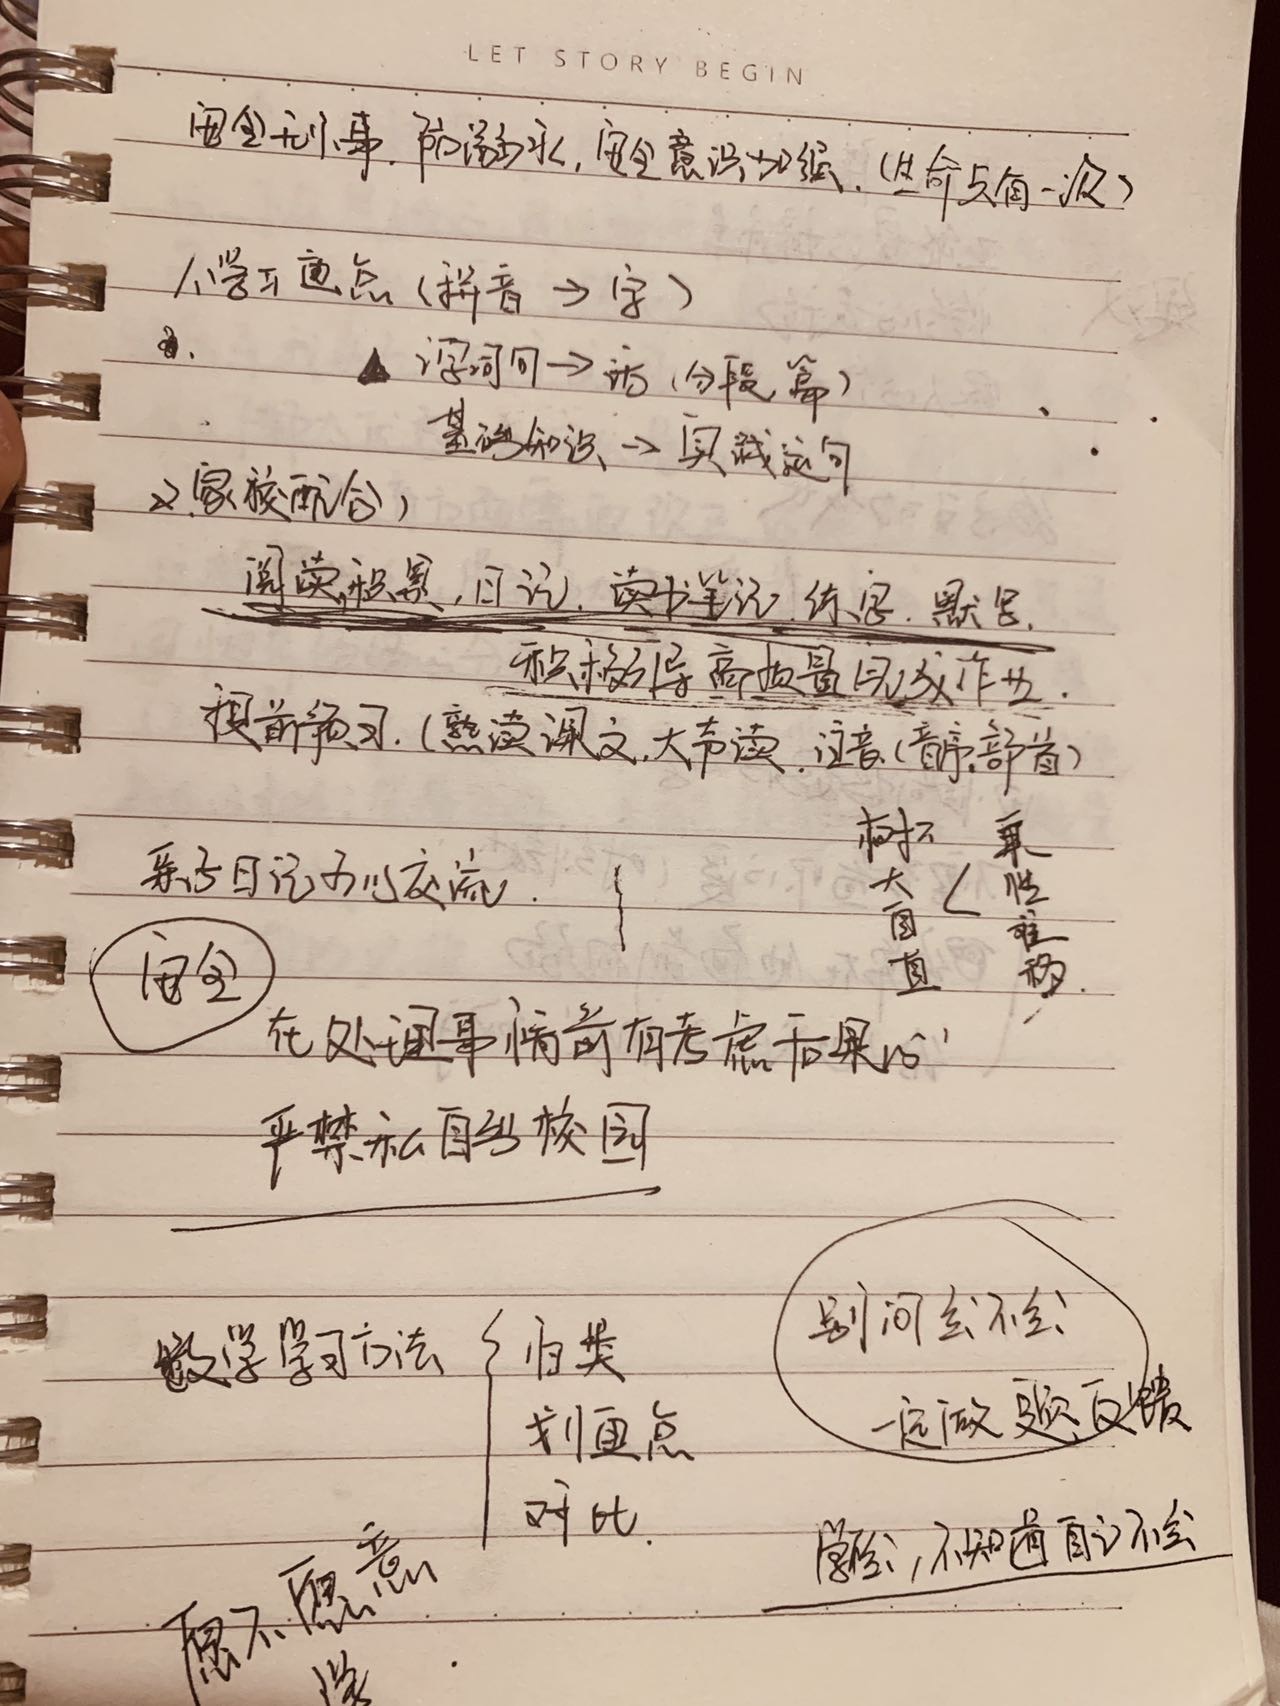 LET STORY BEGIN
安全无小事.防溺水,安全意识加强.(生命只有一次)
1、学习重点(拼音→字)
▲ 字词句→话(分段,篇)
基础知识→实践造句
2、家校配合)
阅读积累,日记.读书笔记.练字.默写.
积极引导高质量完成作业.
提前预习.(熟读课文,大声读.注音(音序,部首)
采访日记分小交流.
安全
在处理事情前有考虑后果的
严禁私自出校园
数学学习方法
归类
划重点
对比.
别问会不会
一定做题反馈
学会,不知道自己不会
愿不愿意
学